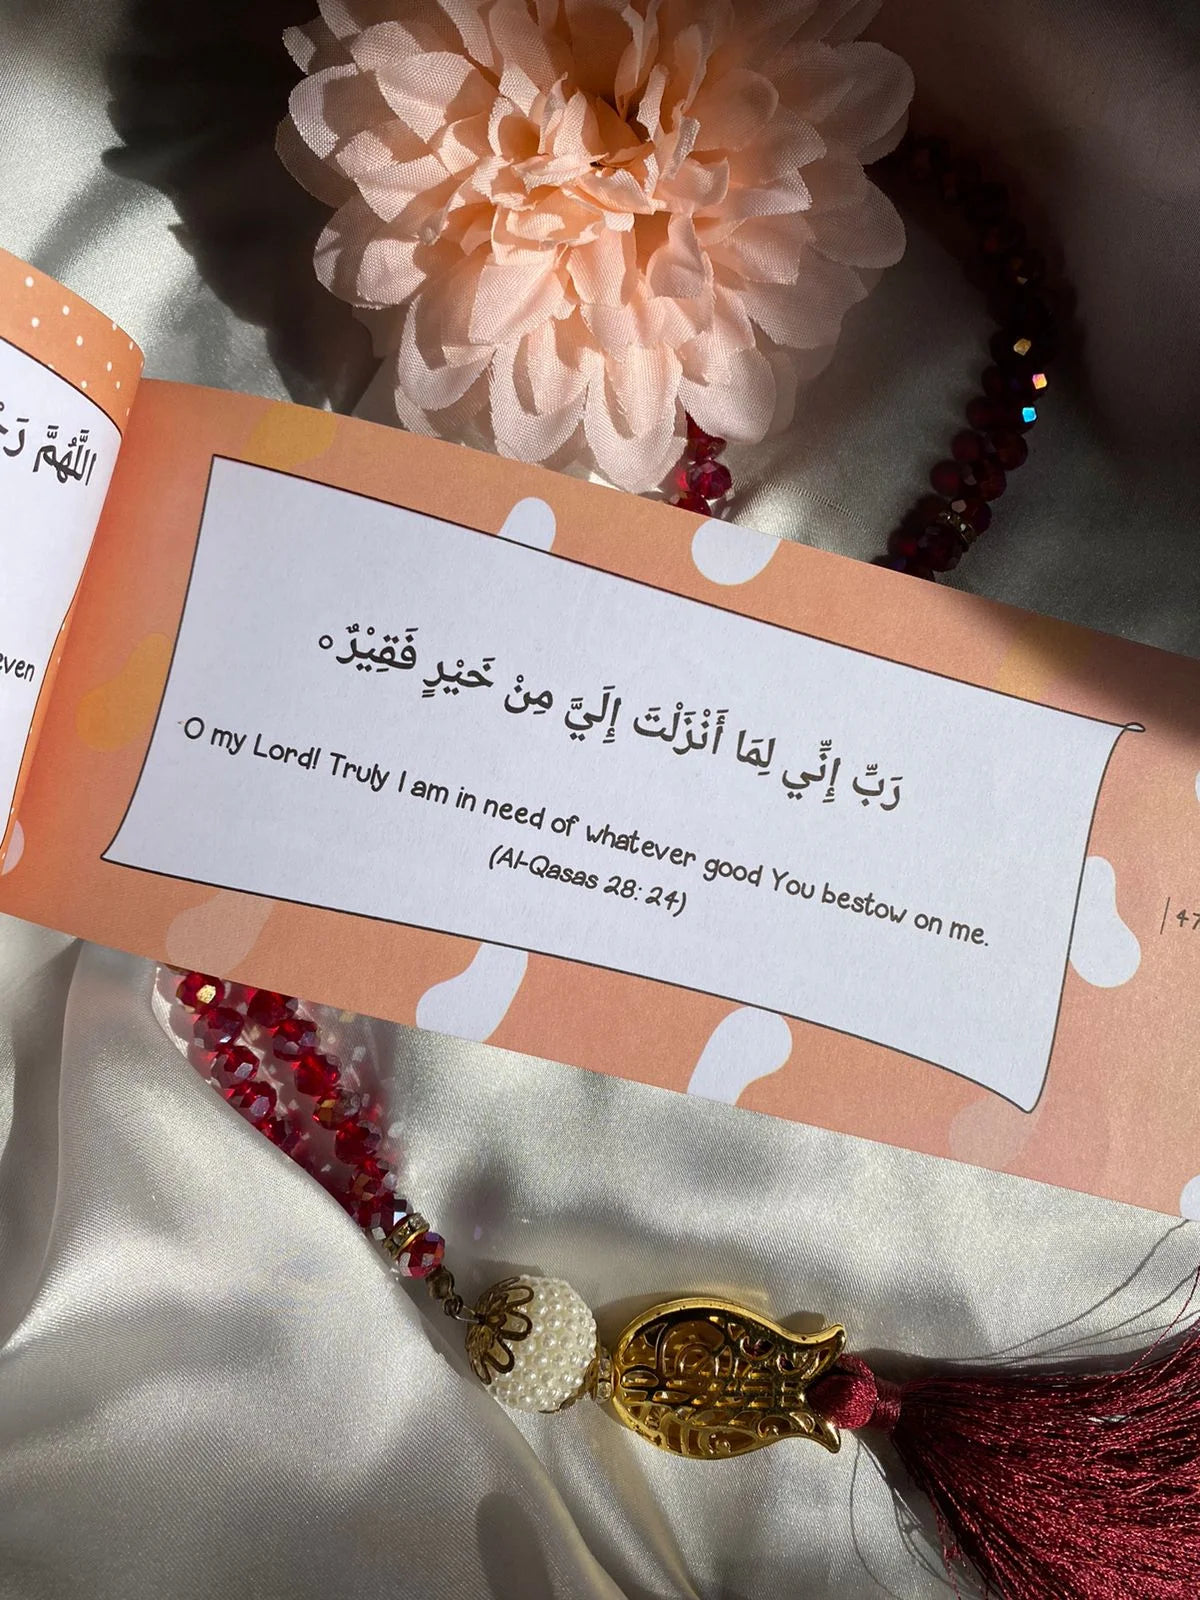 اللَّهُمَّ
even
رَبِّ إِنِّي لِمَا أَنْزَلْتَ إِلَيَّ مِنْ خَيْرٍ فَقِيْرٌ ه
O my Lord! Truly I am in need of whatever good You bestow on me.
(Al-Qasas 28: 24)
| 47